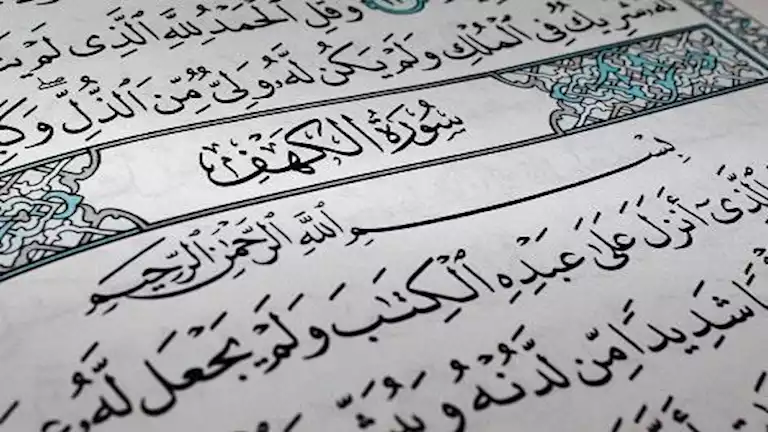 وَقُلِ ٱلۡحَمۡدُ لِلَّهِ ٱلَّذِى لَمۡ
لَّهُۥ شَرِيكٌ فِى ٱلۡمُلۡكِ وَلَمۡ يَكُن لَّهُۥ وَلِىٌّ مِّنَ ٱلذُّلِّ ۖ
سُورَةُ الكَهْفِ
بِسۡمِ ٱللَّهِ ٱلرَّحۡمَٰنِ ٱلرَّحِيمِ
ٱلَّذِىٓ أَنزَلَ عَلَىٰ عَبۡدِهِ ٱلۡكِتَٰبَ وَلَمۡ يَجۡعَل لَّهُۥ
شَدِيدًا مِّن لَّدُنۡهُ